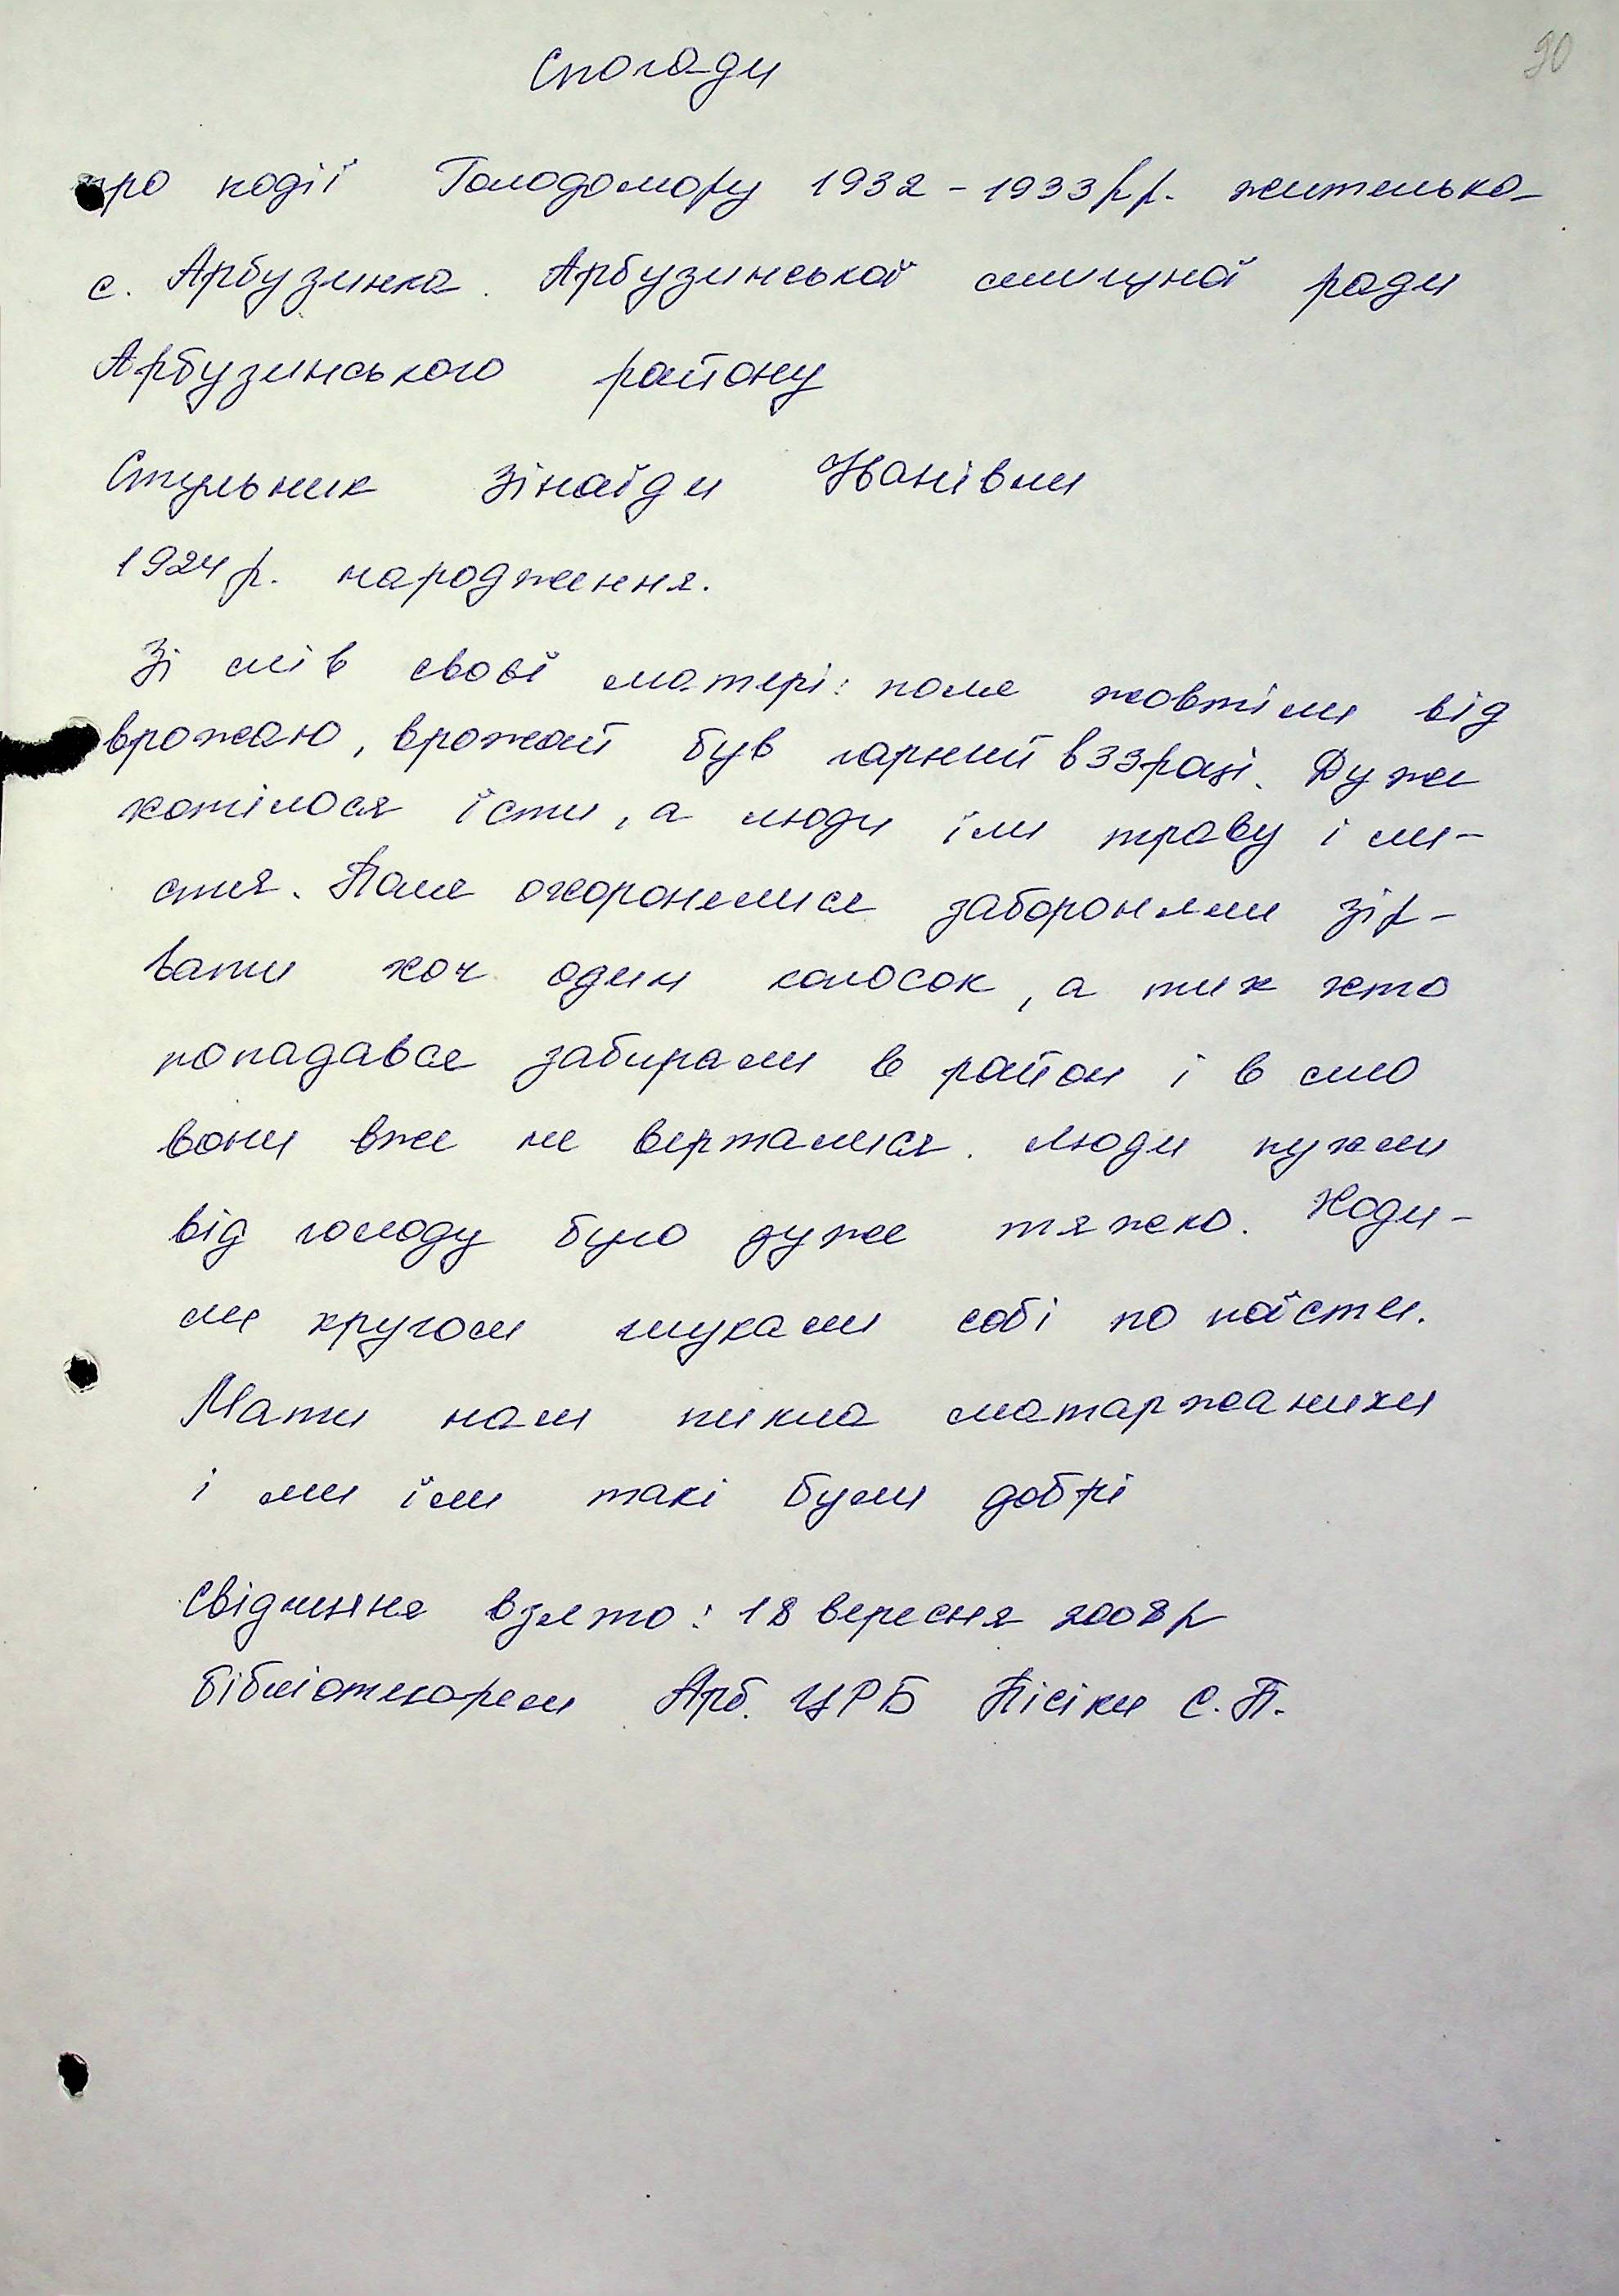 90
Спогади
про події Голодомору 1932-1933рр. жителька
с. Арбузинка. Арбузинської селищної ради
Арбузинського району
Стульник Зінаїди Іванівни
1924 р. народження.
Зі слів своєї матері: поле жовтіли від
врожаю, врожай був гарний в 33 році. Дуже
хотілося їсти, а люди їли траву і ли-
стя. Поле охоронялися забороняли зір-
вати хоч один колосок, а тих хто
попадався забирали в район і в село
вони вже не верталися. Люди пухли
від голоду було дуже тяжко. Ходи-
ли кругом шукали собі по поїсти.
Мати нам пикла матаржаники
і ми їли такі були добрі
Свідчення взято: 18 вересня 2008р
бібліотекарем Арб. ЦРБ Пісіки С.П.